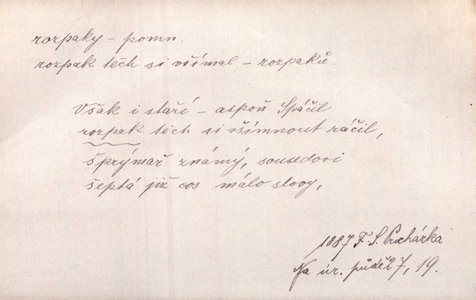 rozpaky – pomn.
rozpak těch si všímal – rozpaků.
Však i staří – aspoň Spáčil
rozpak těch si všimnout ráčil,
šprýmař známý, sousedovi
šeptá již cos málo slovy,
1887 F. S. Procházka
Na úr. půdě 27, 19.